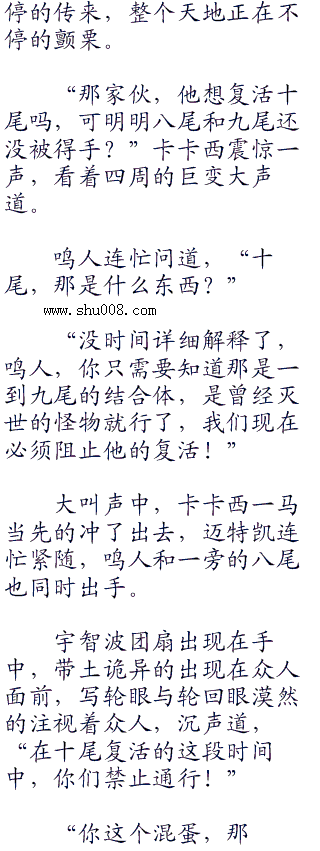 停的传来，整个天地正在不
停的颤栗。
“那家伙，他想复活十
尾吗，可明明八尾和九尾还
没被得手？”卡卡西震惊一
声，看着四周的巨变大声
道。
鸣人连忙问道，“十
尾，那是什么东西？”
www.shu008.com
“没时间详细解释了，
鸣人，你只需要知道那是一
到九尾的结合体，是曾经灭
世的怪物就行了，我们现在
必须阻止他的复活！”
大叫声中，卡卡西一马
当先的冲了出去，迈特凯连
忙紧随，鸣人和一旁的八尾
也同时出手。
宇智波团扇出现在手
中，带土诡异的出现在众人
面前，写轮眼与轮回眼漠然
的注视着众人，沉声道，
“在十尾复活的这段时间
中，你们禁止通行！”
“你这个混蛋，那